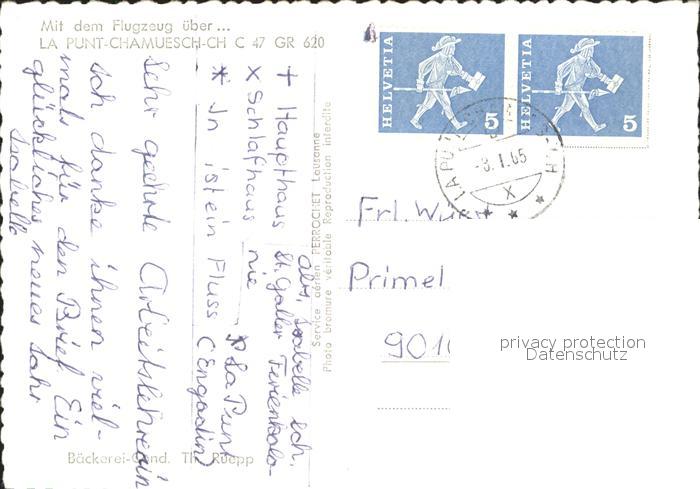 Mit dem Flugzeug über...
LA PUNT-CHAMUESCH-CH C 47 GR 620
Sehr geehrte Arbeitslehrerin
Ich danke ihnen viel-
mals für den Brief. Ein
glückliches neues Jahr
Isabelle
+ Haupthaus
x Schlafhaus
* In ist ein Fluss
* La Punt
(Engadin)
abs. Isabelle
St. Galler Ferienkolo-
nie
Bäckerei-Cond. Th. Ruepp
Service aérien PERROCHET Lausanne
Photo bromure véritable Reproduction interdite
HELVETIA 5
HELVETIA 5
LA PUNT
-8.1.65
X
Frl.
Primel
9010
privacy protection
Datenschutz